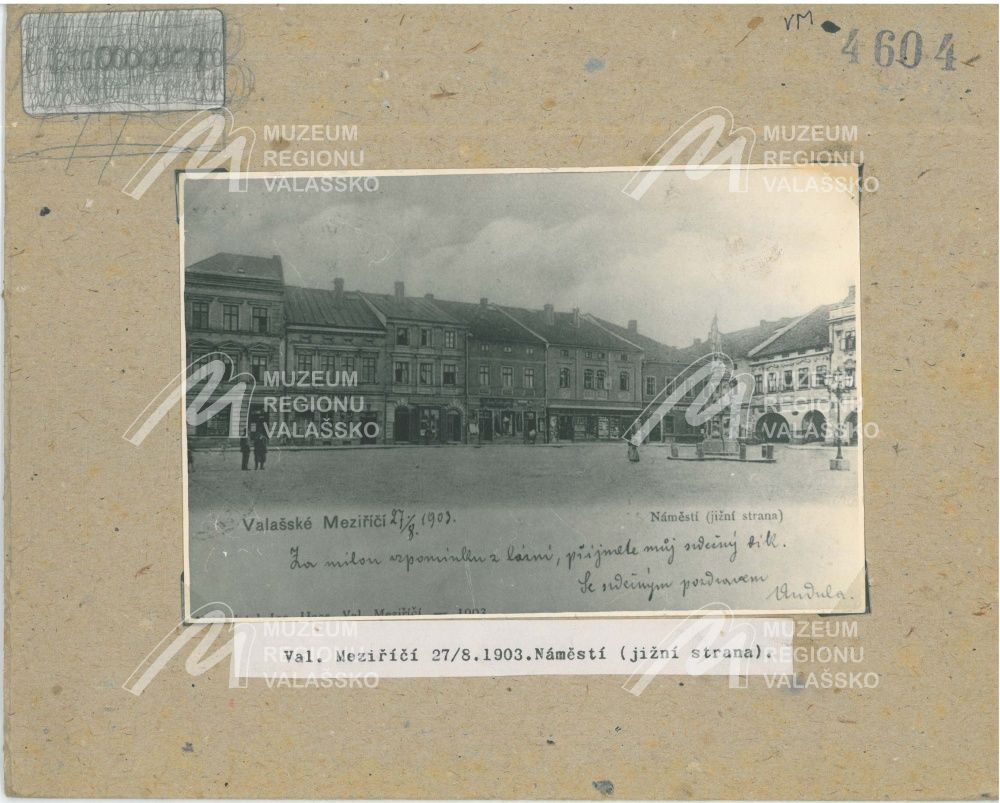 VM
4604
MUZEUM
REGIONU
VALAŠSKO
MUZEUM
REGIONU
VALAŠSKO
MUZEUM
REGIONU
VALAŠSKO
MUZEUM
REGIONU
VALAŠSKO
Valašské Meziříčí 27/8. 1903.
Náměstí (jižní strana)
Za milou vzpomínku z lázní, přijměte můj srdečný dík.
Se srdečným pozdravem
Andula.
Val. Meziříčí — 1903
MUZEUM
REGIONU
VALAŠSKO
MUZEUM
REGIONU
VALAŠSKO
Val. Meziříčí 27/8.1903.Náměstí (jižní strana).